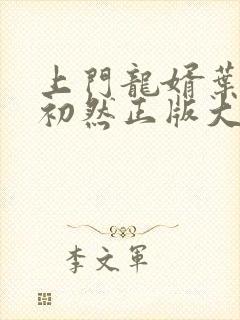 上門龍婿葉
初然正版大
李文軍